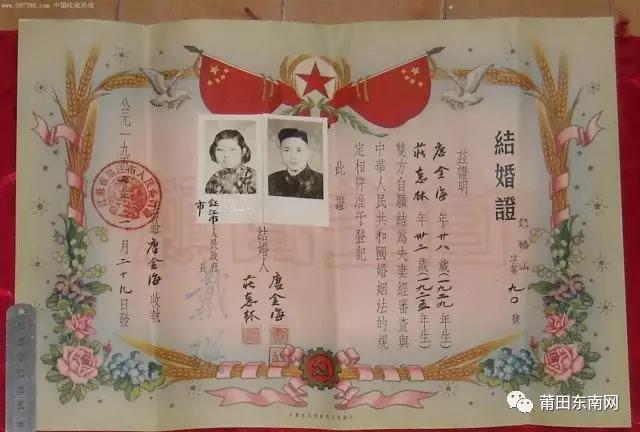 www.997788.com 中国收藏热线
結婚證
字第九〇號
茲證明
唐金海年廿八歲(一九二九年生)
莊惠林年卅二歲(一九二五年生)
雙方自願結為夫妻經審查與
中華人民共和國婚姻法的規
定相符准予登記
此證
結婚人
唐金海
莊惠林
市人民政府
市長
公元一九五
月二十九日發
唐金海收執
莆田东南网